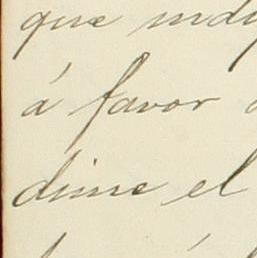 que indi
á favor
dime el